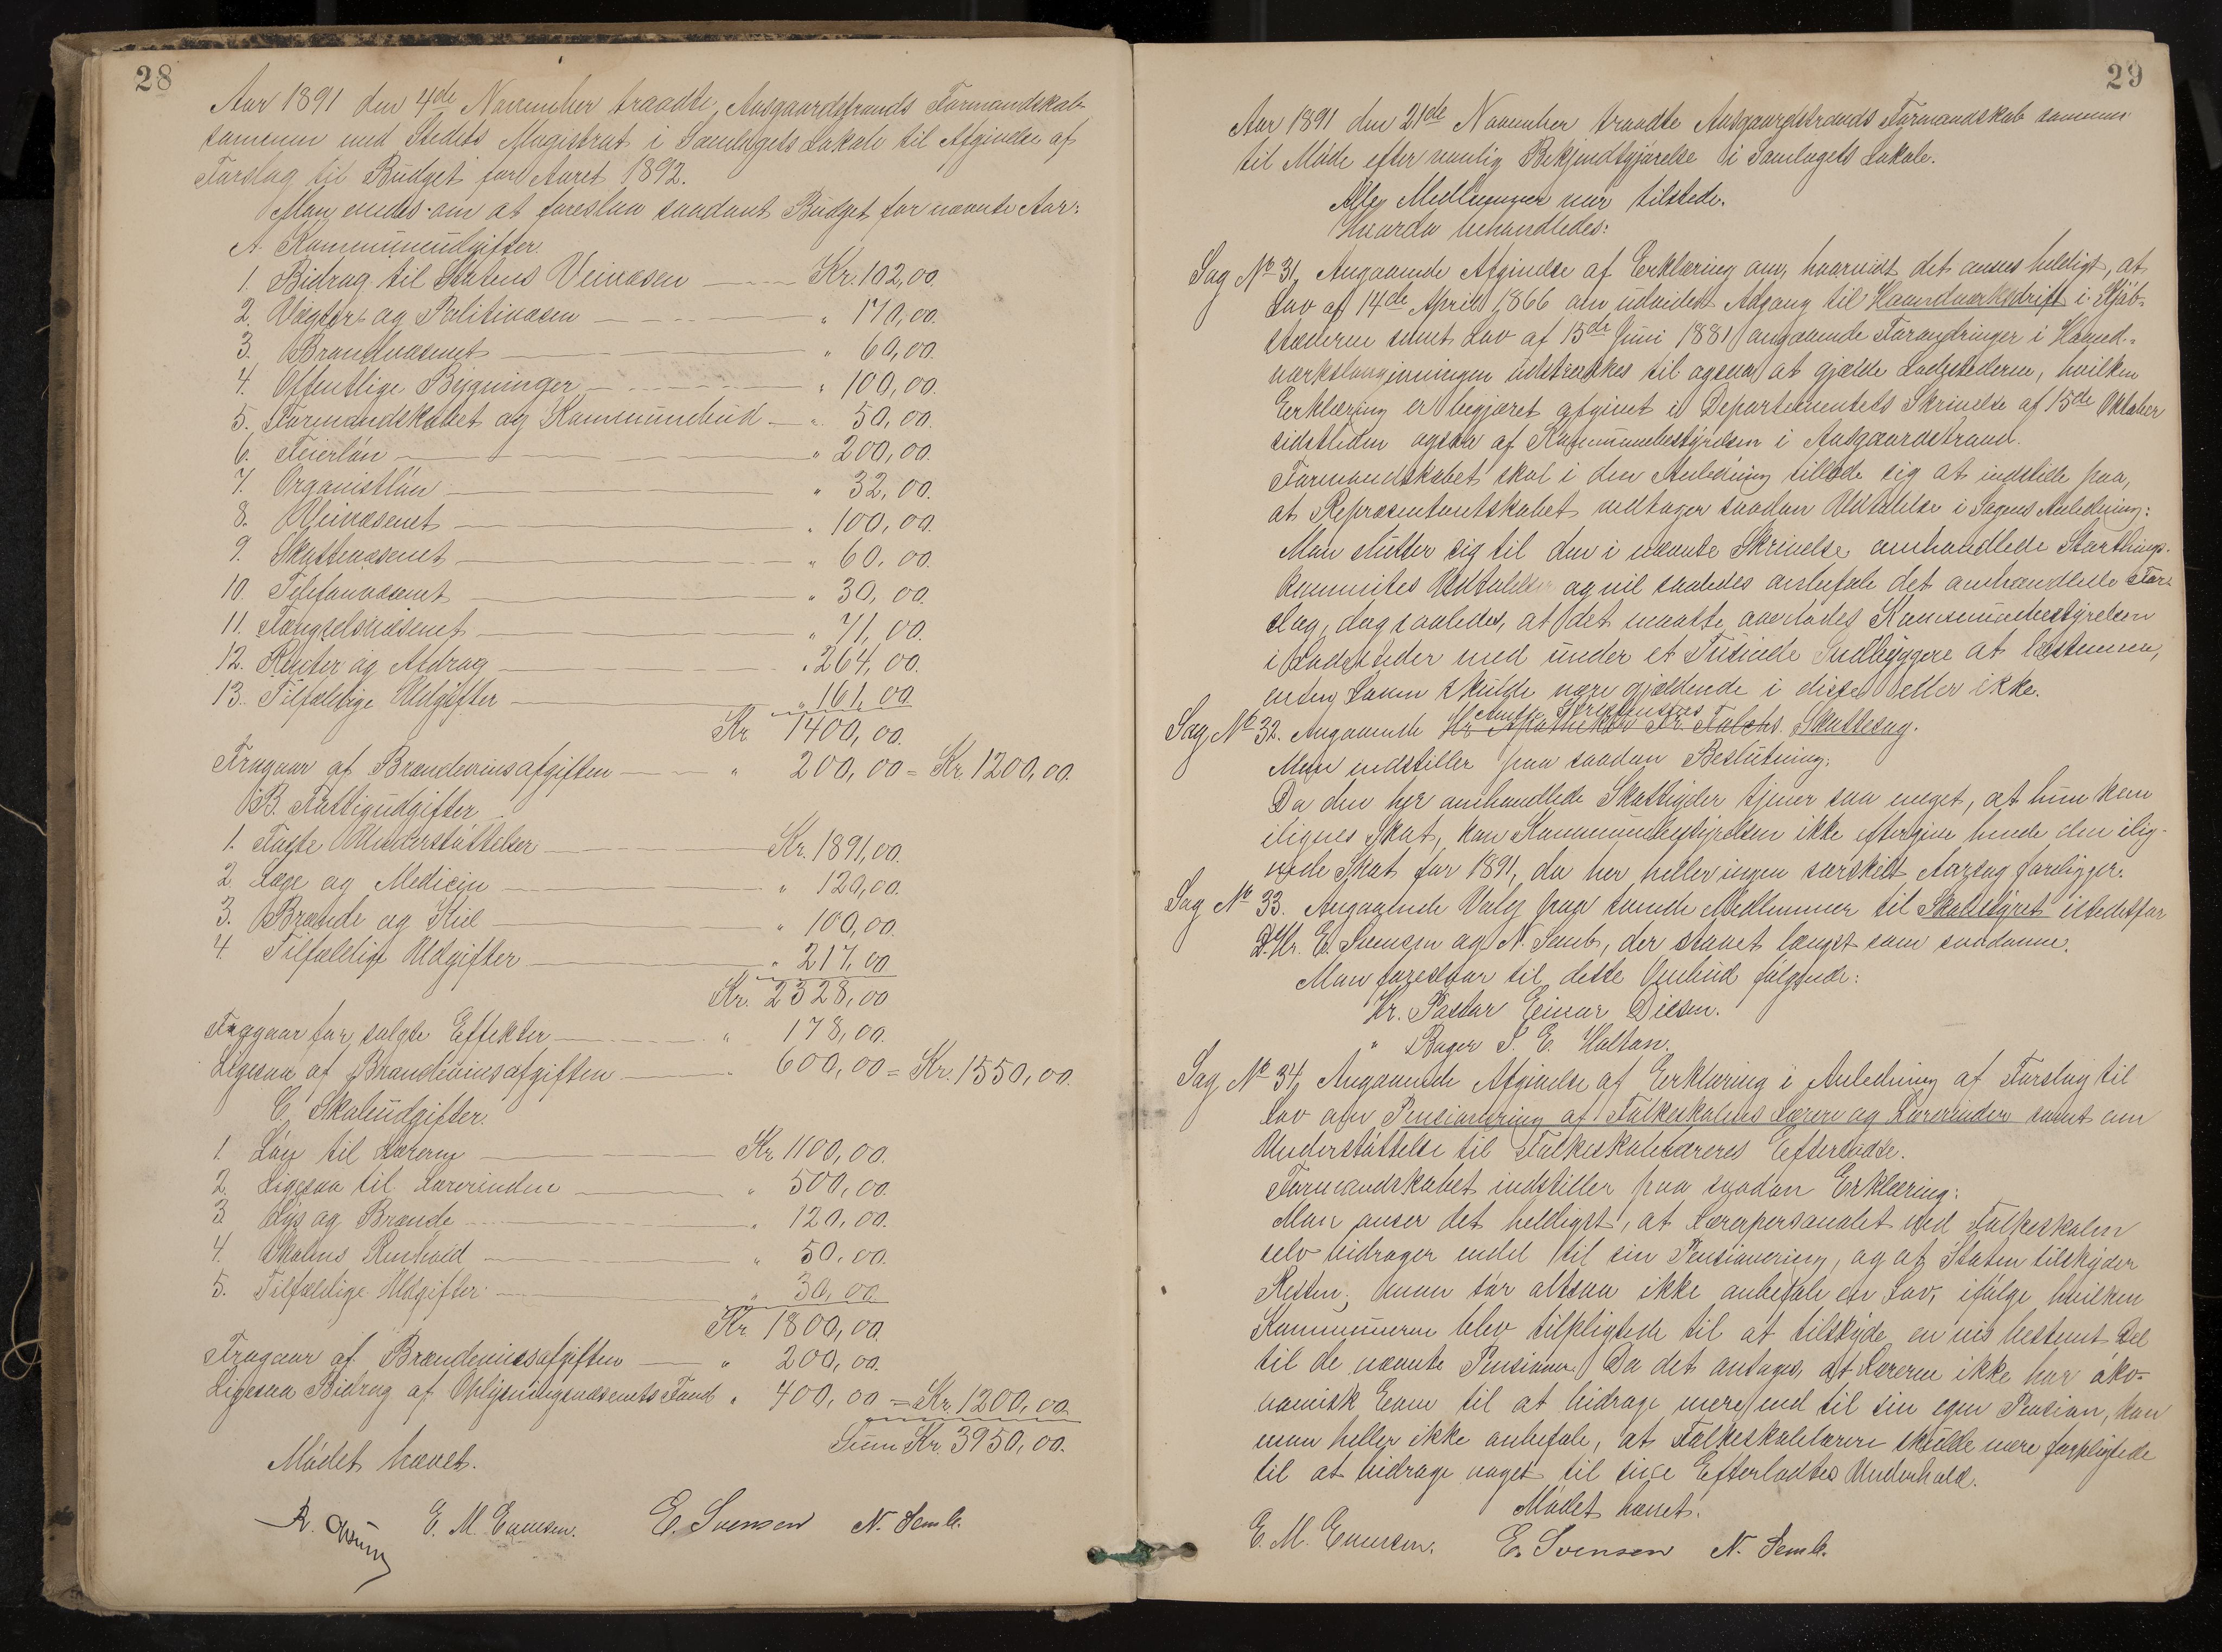 28
Aar 1891 den 4de November traadte Aasgaardstrands Formandskab
sammen med Stedets Magistrat i Samlagets Lokale til Afgivelse af
Forslag til Budget for Aaret 1892.
Man enedes om at foreslaa saadant Budget for nævnte Aar:
A. Kommuneudgifter.
1. Bidrag til Statens Veivæsen — Kr. 102,00.
2. Vægter- og Politivæsen — " 170,00.
3. Brandvæsenet — " 60,00.
4. Offentlige Bygninger — " 100,00.
5. Formandskabet og Kommunebud — " 50,00.
6. Feierløn — " 200,00.
7. Organistløn — " 32,00.
8. Veivæsenet — " 100,00.
9. Skattevæsenet — " 60,00.
10. Telefonvæsenet — " 30,00.
11. Fængselsvæsenet — " 71,00.
12. Renter og Afdrag — " 264,00.
13. Tilfældige Udgifter — " 161,00
Kr 1400,00.
Fragaar af Brændevinsafgiften — " 200,00 = Kr. 1200,00.
B. Fattigudgifter
1. Faste Understøttelser — Kr. 1891,00.
2. Læge og Medicin — " 120,00.
3. Brænde og Kul — " 100,00.
4. Tilfældige Udgifter — " 217,00
Kr. 2328,00
Fragaar for solgte Effekter — " 178,00.
Ligesaa af Brændevinsafgiften — " 600,00 = Kr. 1550,00.
C. Skoleudgifter.
1. Løn til Læreren — Kr. 1100,00.
2. Ligesaa til Lærerinden — " 500,00.
3. Lys og Brænde — " 120,00.
4. Skolens Renhold — " 50,00.
5. Tilfældige Udgifter — " 30,00
Kr. 1800,00.
Fragaar af Brændevinsafgiften — " 200,00.
Ligesaa Bidrag af Oplysningsvæsenets Fond " 400,00 = Kr. 1200,00.
Sum Kr. 3950,00.
Mødet hævet.
E. M. Evensen. E. Svensen N. Semb.
29
Aar 1891 den 21de November traadte Aasgaardstrands Formandskab sammen
til Møde efter vanlig Bekjendtgjørelse i Samlagets Lokale.
Alle Medlemmer var tilstede.
Hvorda behandledes:
Sag No 31, Angaaende Afgivelse af Erklæring om, hvorvidt det anses heldigt, at
Lov af 14de April 1866 om udvidet Adgang til Haandværksdrift i Kjøb-
stæderne samt Lov af 15de Juni 1881 angaaende Forandringer i Haand-
værkslovgivningen udstrækkes til ogsaa at gjælde Ladestederne, hvilken
Erklæring er begjæret afgivet i Departementets Skrivelse af 15de Oktober
sidstleden ogsaa af Kommunebestyrelsen i Aasgaardstrand.
Formandskabet skal i den Anledning tillade sig at indstille paa,
at Repræsentantskabet vedtager saadan Udtalelse i Sagens Anledning:
Man slutter sig til den i nævnte Skrivelse omhandlede Storthings-
kommites Udtalelse og vil saaledes anbefale det omhandlede For-
slag, dog saaledes, at det maatte overlades Kommunebestyrelsen
i Ladesteder med under et Tusinde Indbyggere at bestemme,
enten Loven skulde være gjældende i disse eller ikke.
Sag No 32. Angaaende Hr. Apotheker Fr. Falchs Skattesag.
Man indstiller paa saadan Beslutning:
Da den her omhandlede Skatteyder tjener saa meget, at hun kan
ilignes Skat, kan Kommunebestyrelsen ikke eftergive hende den ilig-
nede Skat for 1891, da her heller ingen særskilt Aarsag foreligger.
Sag No 33. Angaaende Valg paa tvende Medlemmer til Skoletilsynet istedetfor
D'Hr. E. Svensen og N. Semb, der staaet længst som saadanne.
Man foreslaar til dette Ombud følgende:
Hr. Pastor Einar Diesen.
" Bager S. E. Holtan.
Sag No 34, Angaaende Afgivelse af Erklæring i Anledning af Forslag til
Lov om Pensionering af Folkeskolens Lærere og Lærerinder samt om
Understøttelse til Folkeskolelæreres Efterladte.
Formandskabet indstiller paa saadan Erklæring:
Man anser det heldigst, at Lærerpersonalet ved Folkeskolen
selv bidrager endel til sin Pensionering, og at Staten tilskyder
Resten; man tør altsaa ikke anbefale en Lov, ifølge hvilken
Kommunerne blev tilpligtede til at tilskyde en vis bestemt Del
til de nævnte Pensioner. Da det antages, at Lærerne ikke har øko-
nomisk Evne til at bidrage mere end til sin egen Pension, kan
man heller ikke anbefale, at Folkeskolelærere skulde være forpligtede
til at bidrage noget til sine Efterladtes Underhold.
Mødet hævet.
E. M. Evensen. E. Svensen N. Semb.